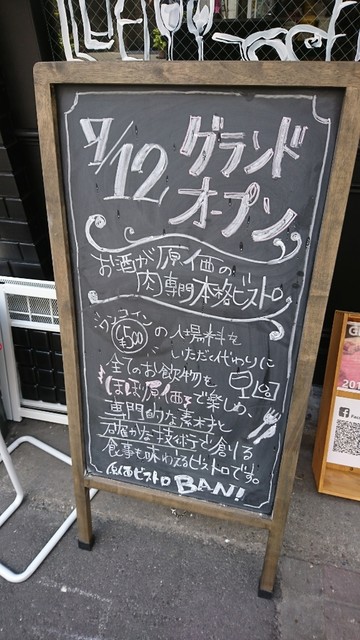 7/12
グランド
オープン
お酒が原価の
肉専門本格ビストロ
ワンコイン
¥500
の入場料を
いただく代わりに
全てのお飲物を
ほぼ原価で楽しめ、
専門的な素材と
確かな技術で創る
食事も味わえるビストロです。
原価ビストロBAN!